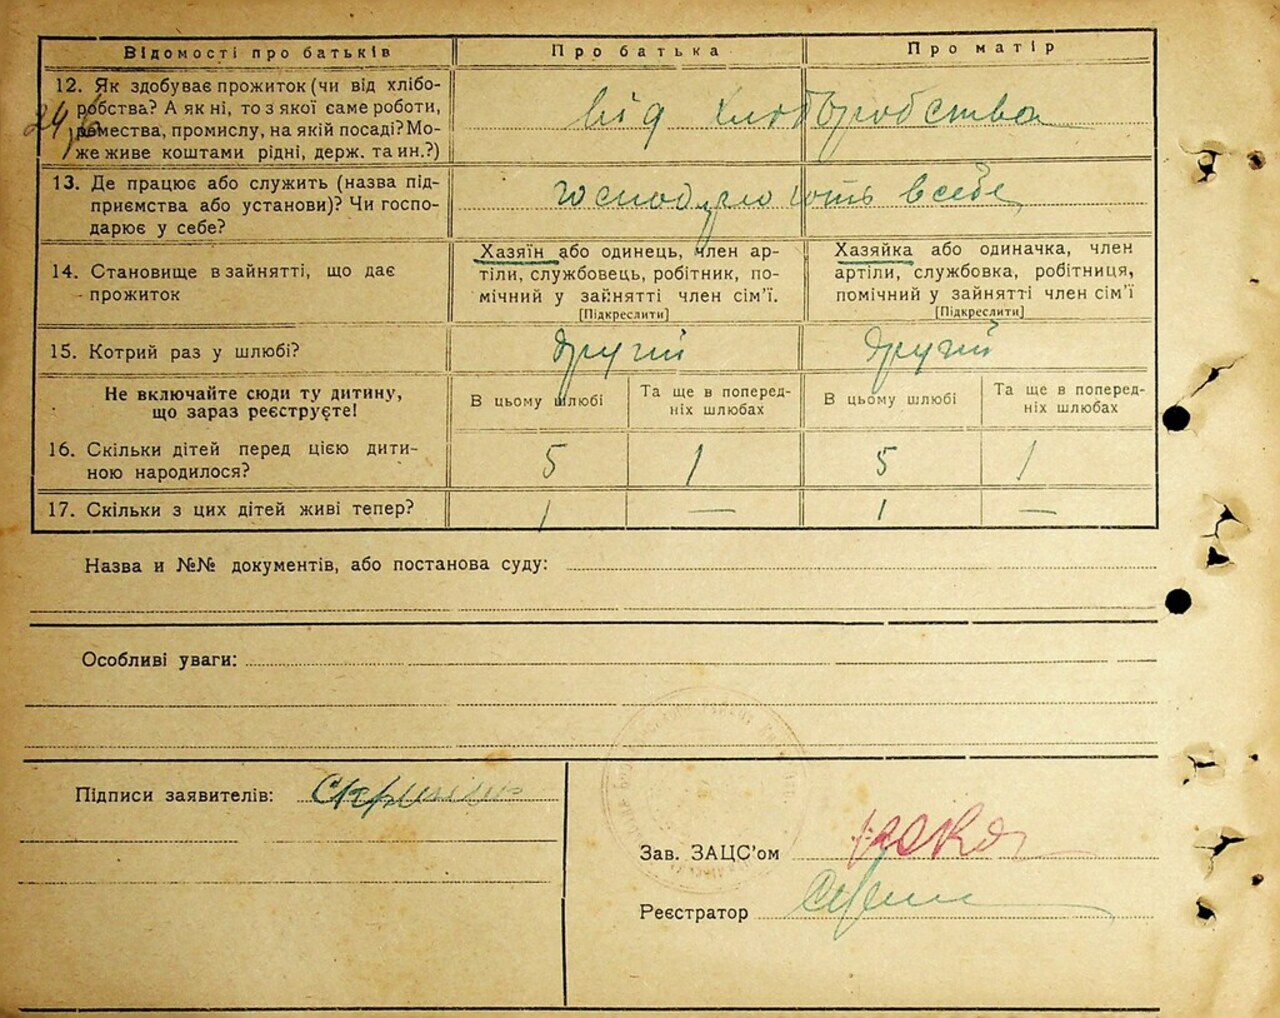 Відомості про батьків
Про батька
Про матір
12. Як здобуває прожиток (чи від хлібо-
робства? А як ні, то з якої саме роботи,
ремества, промислу, на якій посаді? Мо-
же живе коштами рідні, держ. та ин.?)
від хліборобства
13. Де працює або служить (назва під-
приємства або установи)? Чи госпо-
дарює у себе?
14. Становище в зайнятті, що дає
прожиток
Хазяїн або одинець, член ар-
тіли, службовець, робітник, по-
мічний у зайнятті член сім'ї.
[Підкреслити]
Хазяйка або одиначка, член
артіли, службовка, робітниця,
помічний у зайнятті член сім'ї
[Підкреслити]
15. Котрий раз у шлюбі?
другий
другий
Не включайте сюди ту дитину,
що зараз реєструєте!
В цьому шлюбі
Та ще в поперед-
ніх шлюбах
В цьому шлюбі
Та ще в поперед-
ніх шлюбах
16. Скільки дітей перед цією дити-
ною народилося?
5
1
5
1
17. Скільки з цих дітей живі тепер?
1
—
1
—
Назва и №№ документів, або постанова суду:
Особливі уваги:
Підписи заявителів:
Зав. ЗАЦС'ом
Реєстратор